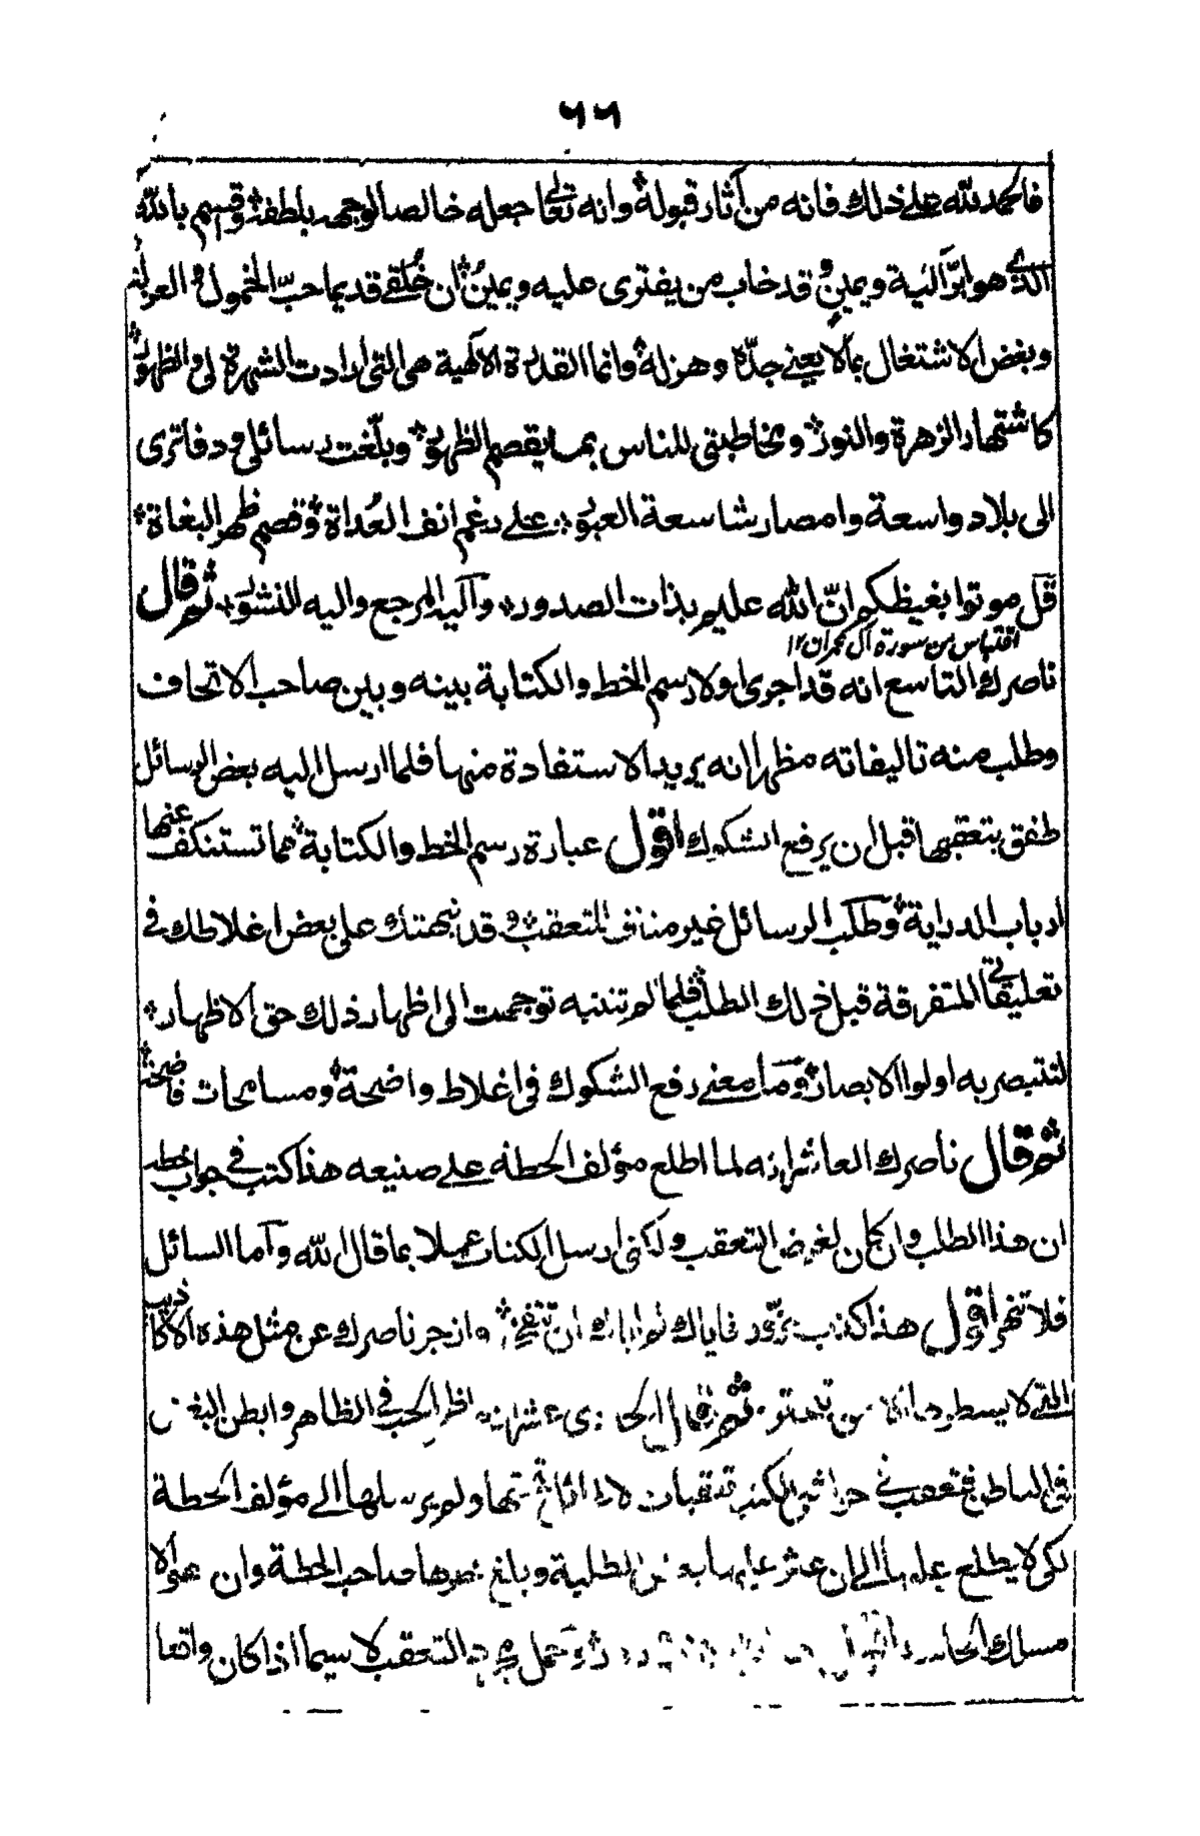 ٦٦
فالحمد لله على ذلك فانه من آثار قبوله وانه تعالى جعله خالصا لوجهه بلطفه وقسم بالله
الذي هو ابرّ اليّة ويمين قد خاب من يفترى عليه ويمين ان خُلقى قديما حبّ الخمول والعزلة
وبغض الاشتغال بما لا يعنى جدّه وهزله وانما القدرة الالٰهية هى التى ارادت الشهرة لى والظهور
كاشتهار الزهرة والنور ويخاطبنى للناس بما يقصم الظهور وبلّغت رسائلى ودفاترى
الى بلاد واسعة وامصار شاسعة العبور على رغم انف العُداة وقصم ظهر البغاة
قل موتوا بغيظكم انّ الله عليم بذات الصدور واليه المرجع واليه النشور ثم قال
اقتباس من سورة آل عمران ١٢
ناصرك التاسع انه قد اجرى اولا رسم الخط والكتابة بينه وبين صاحب الاتحاف
وطلب منه تاليفاته مظهرا انه يريد الاستفادة منها فلما ارسل اليه بعض الرسائل
طفق بتعقبها قبل ان يرفع الشكوك اقول عبارة رسم الخط والكتابة مما تستنكف عنها
ارباب الدراية وطلب الرسائل غير مناف للتعقب وقد نبهتك على بعض اغلاطك فى
تعليقاتى المتفرقة قبل ذلك الطلب فلما لم تنتبه توجهت الى اظهار ذلك حق الاظهار
لتتبصر به اولوا الابصار وما معنى رفع الشكوك فى اغلاط واضحة ومسامحات فاضحة
ثم قال ناصرك العاشر انه لما اطلع مؤلف الحطة على صنيعه هذا كتب فى جواب خطه
ان هذا الطلب وان كان لغرض التعقب ولكنى ارسل الكتاب عملا بما قال الله واما السائل
فلا تنهر اقول هذا كذب وزور فاياك ثم اياك ان وازجر ناصرك عن مثل هذه الاكاذيب
التى لا يسطرها من ثم قال الحادى عشر انه اظهر الحب فى الظاهر وابطن البغض
فى الباطن فتعقب فى حواشى الكتب تعقبات ولم يرسلها الى مؤلف الحطة
لكى لا يطلع عليها الى ان عثر عليها بعض الطلبة وبلغ خبرها صاحب الحطة وان هؤلاء
مسالك اقول التعقب لا سيما اذا كان واقعا